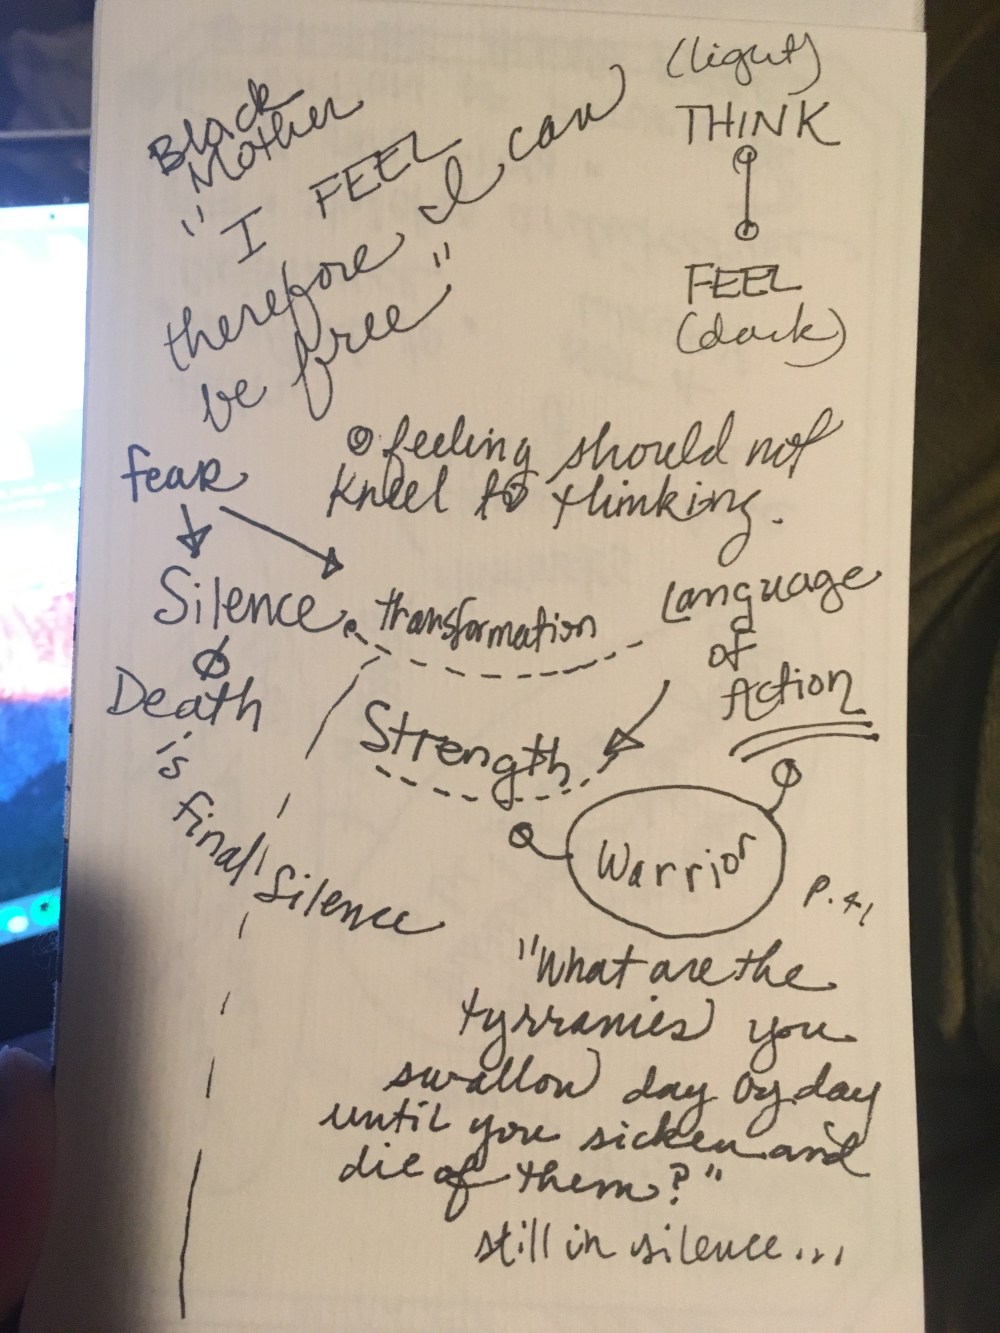 Black
Mother
"I FEEL
therefore I can
be free"
(light)
THINK
FEEL
(dark)
feeling should not
kneel to thinking.
fear
Silence
transformation
Language
of
Action
Death
is
final
silence
Strength
Warrior
P. 41
"What are the
tyrranies you
swallow day by day
until you sicken and
die of them?"
still in silence...